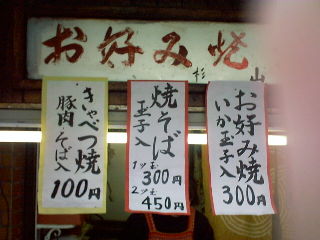 お好み焼
杉 山
きゃべつ焼
豚肉・そば入
100円
焼そば
玉子入
1ツ玉
300円
2ツ玉
450円
お好み焼
いか玉子入
300円